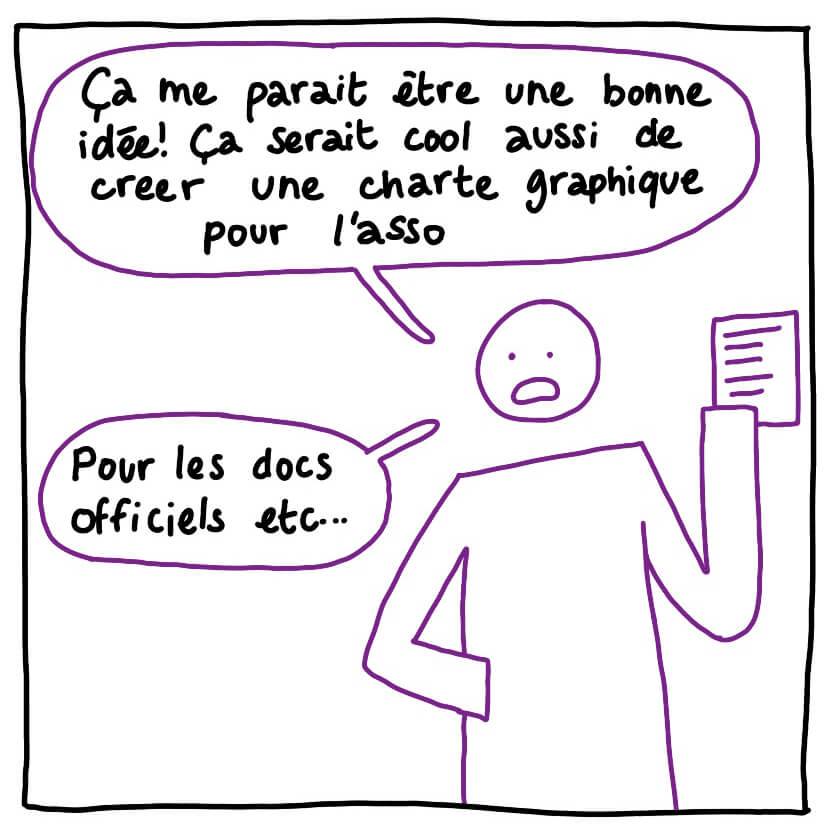 Ça me parait être une bonne
idée! Ça serait cool aussi de
creer une charte graphique
pour l'asso
Pour les docs
officiels etc...